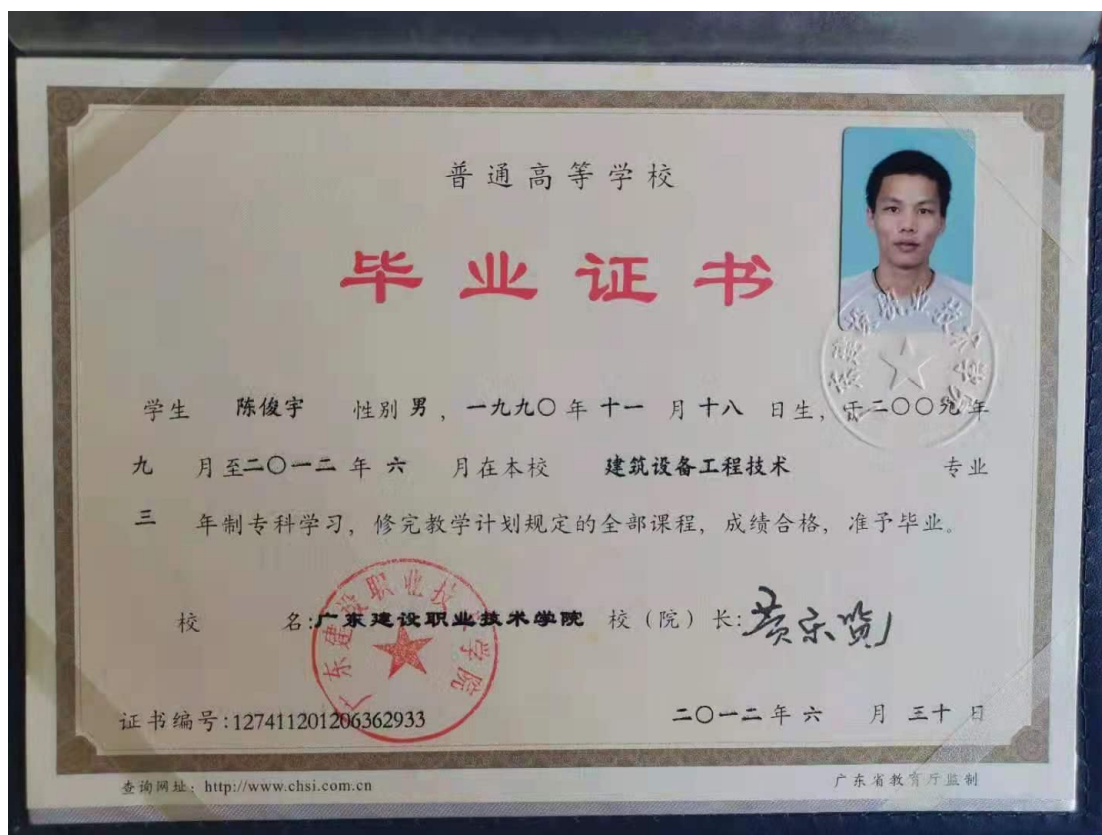 普通高等学校
毕业证书
学生 陈俊宇 性别 男，一九九〇年 十一 月 十八 日生，于二〇〇九年
九 月至二〇一二 年 六 月在本校 建筑设备工程技术 专业
三 年制专科学习，修完教学计划规定的全部课程，成绩合格，准予毕业。
校 名:广东建设职业技术学院 校（院）长:
广东建设职业技术学院
证书编号:127411201206362933 二〇一二 年 六 月 三十 日
查询网址：http://www.chsi.com.cn 广东省教育厅监制